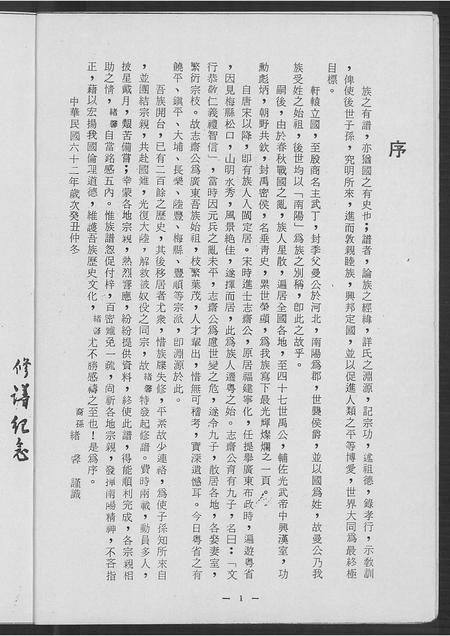 序
族之有譜，亦猶國之有史也；譜者，論族之經緯，詳氏之淵源，記宗功，述祖德，錄孝行，示敎訓
，俾使後世子孫，究明所來，進而敦親睦族，興邦定國，並以促進人類之平等博愛，世界大同爲最終極
目標。
軒轅立國，至殷商名主武丁，封季父曼公於河北，南陽爲郡，世襲侯爵，並以國爲姓，故曼公乃我
族受姓之始祖，後世均以「南陽」爲族之別稱，卽此之故乎。
嗣後，由於春秋戰國之亂，族人星散，遍居全國各地，至四十七世禹公，輔佐光武帝中興漢室，功
勳彪炳，朝野共欽，封禹密侯，名垂靑史，累世榮顯，爲我族寫下最光輝燦爛之一頁。
自唐宋以降，卽有族人入閩定居。宋時進士志齋公，原居福建寧化，任提擧廣東布政時，遍遊粵省
，因見梅縣松口，山明水秀，風景絕佳，遂擇而居，此爲族人遷粵之始。志齋公育有九子，名曰：「文
行恭敬仁義禮智信」，當時因元兵之亂未平，志齋公爲慮世變之危，遂令九子，散居各地，各娶妻室，
繁衍宗枝。故志齋公爲廣東吾族始祖，枝繁葉茂，人才輩出，惜無可稽考，實深遺憾耳。今日粵省之有
饒平、鎭平、大埔、長樂、陸豐、梅縣、豐順等宗派，卽淵源於此。
吾族開台，已有二百餘之歷史，其後移居者尤衆，惜族牒失修，平素故少連絡，爲使子孫知所來自
，並團結宗親，共赴國難，光復大陸，解救被奴役之同宗，故緖謦特發起修譜。費時兩載，動員多人，
披星戴月，艱苦備嘗；幸蒙各地宗親，熱烈響應，紛紛提供資料，終使此譜，得能順利完成，各宗親相
助之情，緖謦自當銘感五內。惟族譜怱促付梓，百密難免一疏，尚祈各地宗親，發揮南陽精神，不吝指
正，藉以宏揚我國倫理道德，維護吾族歷史文化，緖謦尤不勝感禱之至也！是爲序。
裔孫緖謦謹識
中華民國六十二年歲次癸丑仲冬
修譜紀念
— 1 —